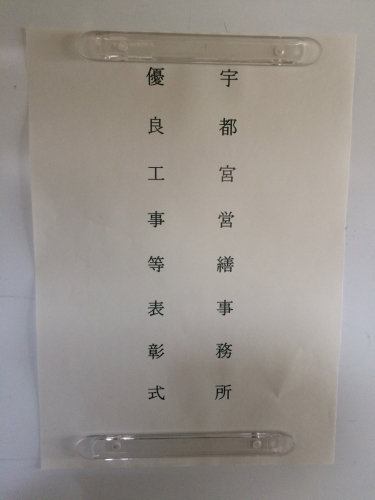 宇都宮営繕事務所
優良工事等表彰式